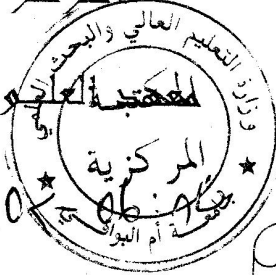 وزارة التعليم العالي والبحث العلمي
المكتبة
المركزية
جامعة أم البواقي